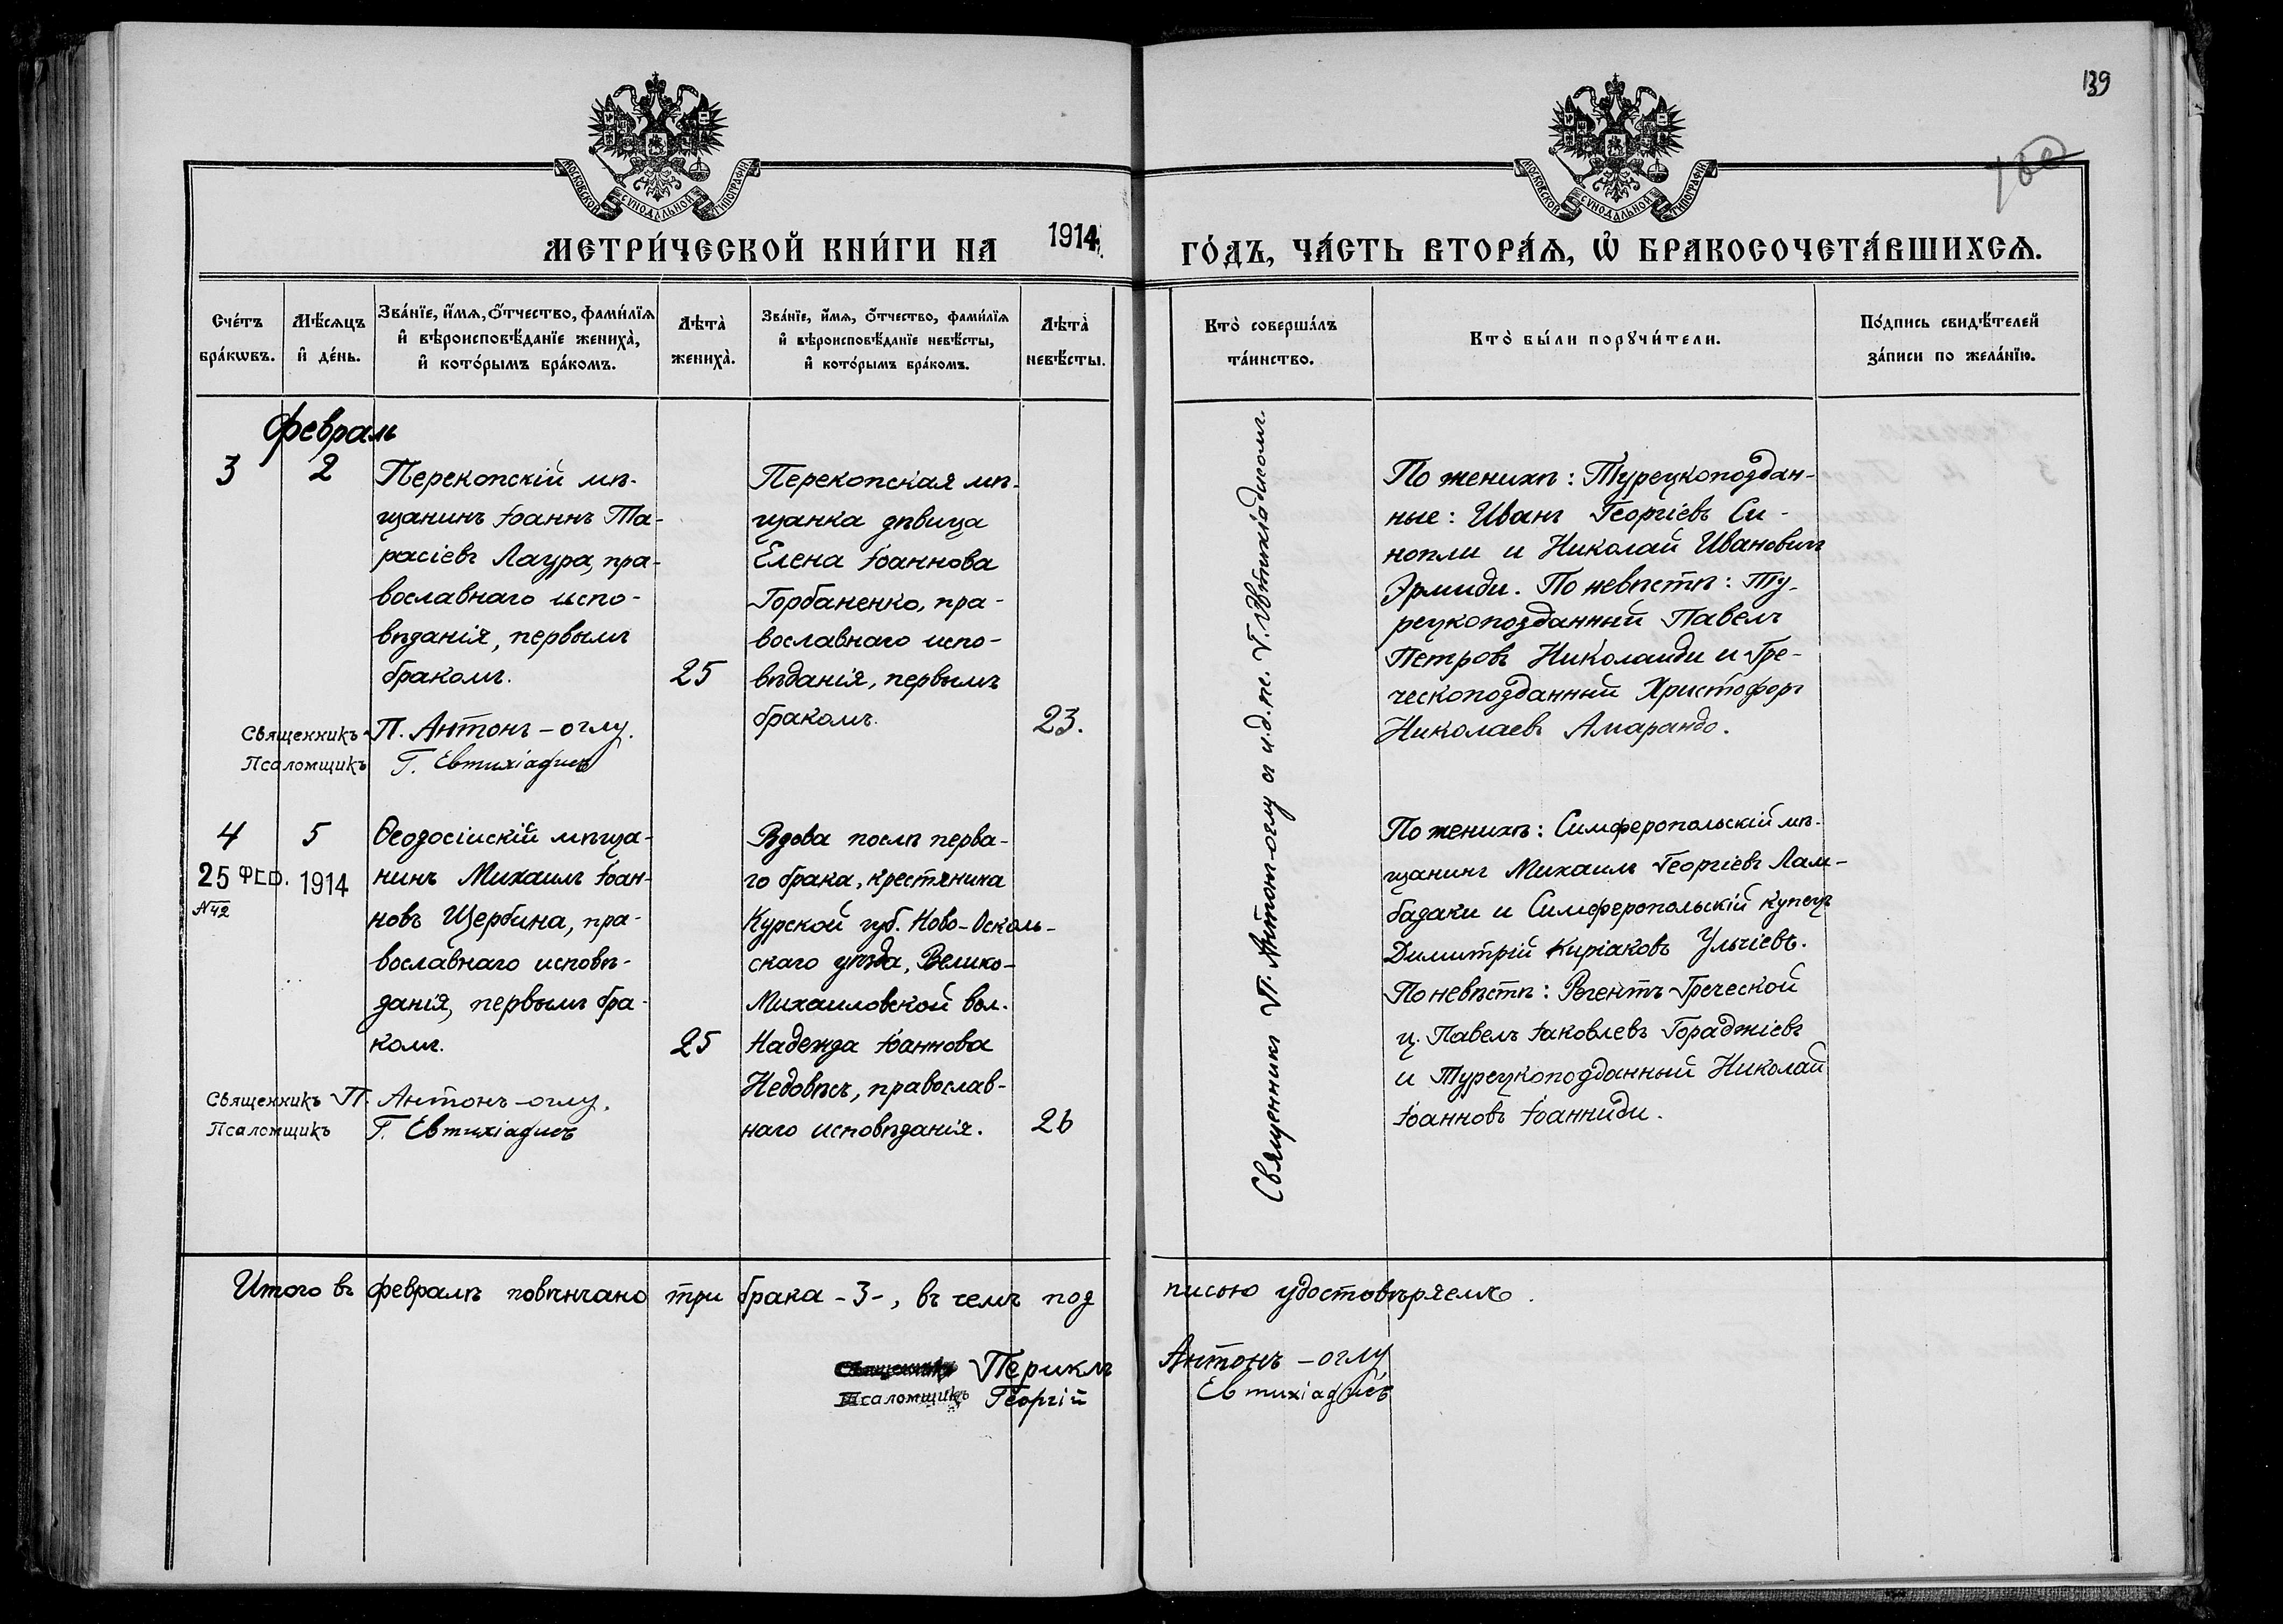 139
МОСКОВСКОЙ СУНОДАЛЬНОЙ ТИПОГРАФІИ
МОСКОВСКОЙ СУНОДАЛЬНОЙ ТИПОГРАФІИ
МЕТРИ́ЧЕСКОЙ КНИ́ГИ НА 1914
ГО́ДЪ, ЧА́СТЬ ВТОРА́Ѧ, Ѡ҆ БРАКОСОЧЕТА́ВШИХСѦ.
Сче́тъ бра́кѡвъ.
Мѣ́сѧцъ и҆ де́нь.
Зва́нїе, и҆́мѧ, ѻ҆́тчество, фами́лїѧ
и҆ вѣроисповѣ́данїе жениха̀,
и҆ кото́рымъ бра́комъ.
Лѣта̀ жениха̀.
Зва́нїе, и҆́мѧ, ѻ҆́тчество, фами́лїѧ
и҆ вѣроисповѣ́данїе невѣ́сты,
и҆ кото́рымъ бра́комъ.
Лѣта̀ невѣ́сты.
Кто̀ соверша́лъ
та́инство.
Кто̀ бы́ли порꙋчи́тели.
По́дпись свидѣ́телей
за́писи по жела́нїю.
Февраль
3
2
Перекопскій мѣ-
щанинъ Іоаннъ Та-
расіевъ Лаура, пра-
вославнаго испо-
вѣданія, первымъ
бракомъ.
25
Перекопская мѣ-
щанка дѣвица
Елена Іоаннова
Горбаненко, пра-
вославнаго испо-
вѣданія, первымъ
бракомъ.
23.
Священникъ П. Антонъ-оглу.
Псаломщикъ Г. Евтихіадисъ
Священникъ П. Антонъ-оглу съ и.д.пс. Г. Евтихіадисомъ.
По женихѣ: Турецкоподдан-
ные: Иванъ Георгіевъ Си-
нопли и Николай Ивановичъ
Эрмиди. По невѣстѣ: Ту-
рецкоподданный Павелъ
Петровъ Николаиди и Гре-
ческоподданный Христофоръ
Николаевъ Амарандо.
4
5
25 ФЕВ. 1914
№42
Ѳеодосійскій мѣща-
нинъ Михаилъ Іоан-
новъ Щербина, пра-
вославнаго исповѣ-
данія, первымъ бра-
комъ.
25
Вдова послѣ перва-
го брака, крестянина
Курской губ. Ново-Осколь-
скаго уѣзда, Велико-
Михаиловской вол.
Надежда Іоаннова
Недовѣсъ, православ-
наго исповѣданія.
26
Священникъ П. Антонъ-оглу.
Псаломщикъ Г. Евтихіадисъ
По женихѣ: Симферопольскій мѣ-
щанинъ Михаилъ Георгіевъ Лам-
бадаки и Симферопольскій купецъ
Димитрій Киріаковъ Ульчіевъ.
По невѣстѣ: Регентъ Греческой
ц. Павелъ Іаковлевъ Гораджіевъ
и Турецкоподданный Николай
Іоанновъ Іоанниди.
Итого въ февралѣ повѣнчано три брака -3-, въ чемъ под
писью удостовѣряемъ.
Священникъ Периклъ Антонъ-оглу
Псаломщикъ Георгій Евтихіадисъ